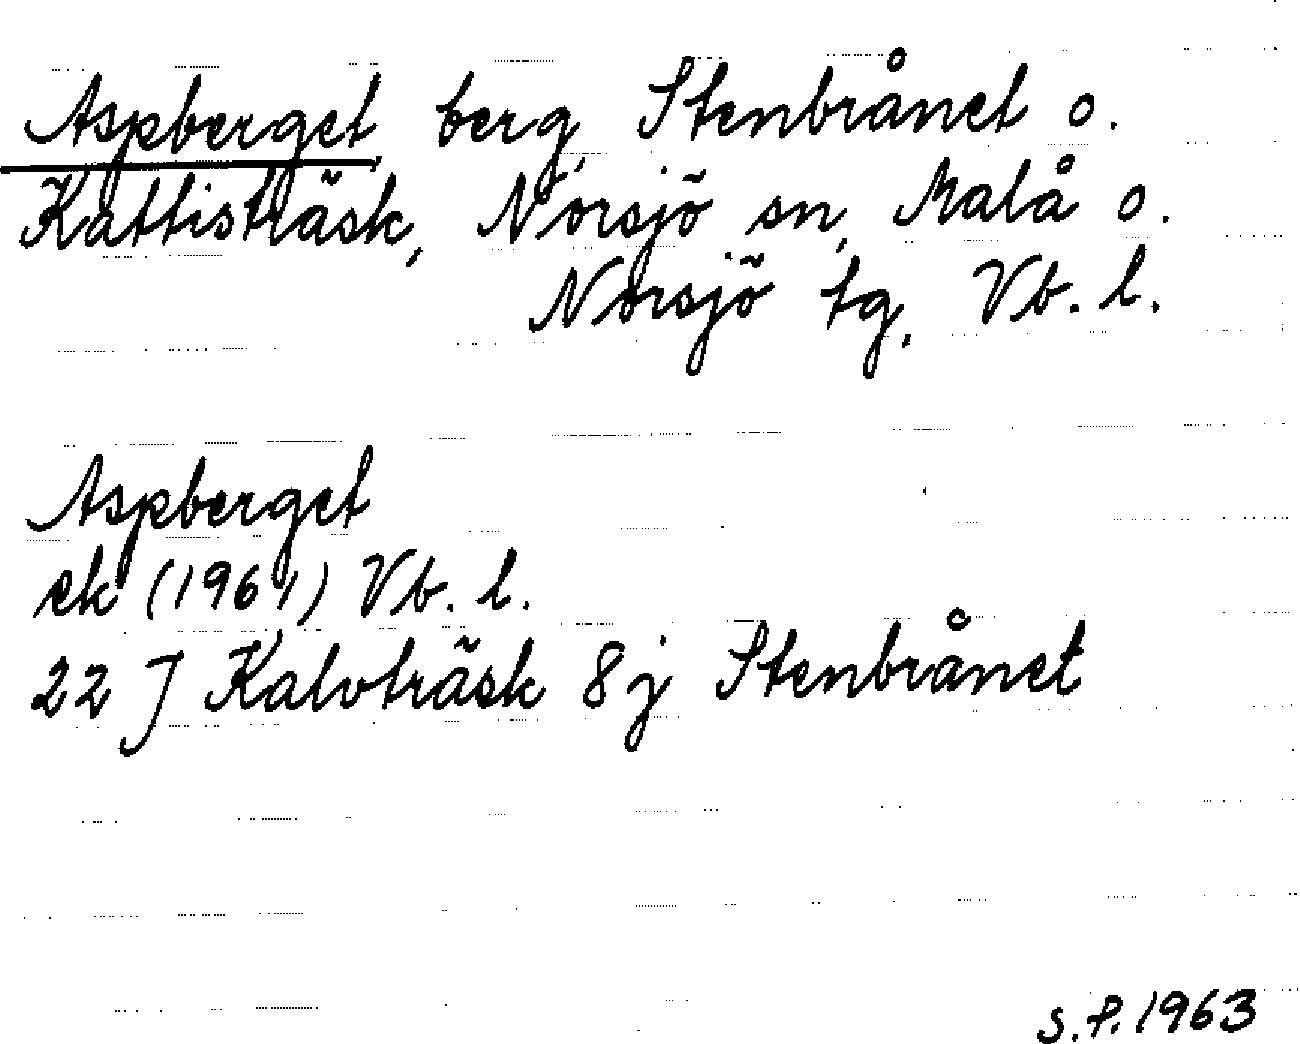 Aspberget, berg, Stenbrånet o.
Kattisträsk, Norsjö sn, Malå o.
Norsjö tg, Vb. l.
Aspberget
ek (1961) Vb. l.
22 J Kalvträsk 8 j Stenbrånet
S.P. 1963